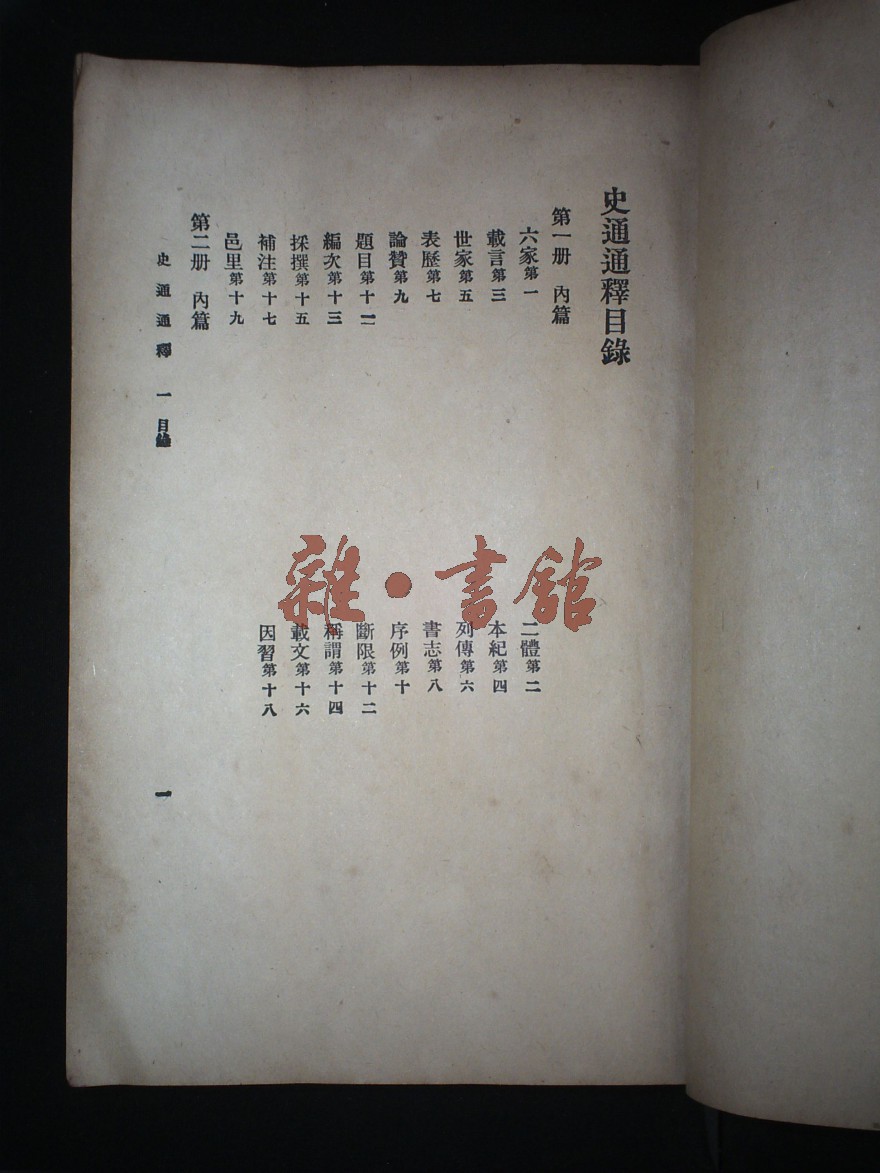 史通通釋目錄
第一册 內篇
六家第一
二體第二
載言第三
本紀第四
世家第五
列傳第六
表歷第七
書志第八
論贊第九
序例第十
題目第十一
斷限第十二
編次第十三
稱謂第十四
採撰第十五
載文第十六
補注第十七
因習第十八
邑里第十九
第二册 內篇
史通通釋 一 目錄
一
雜·書館